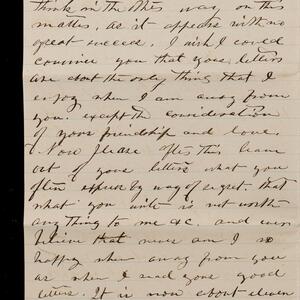 think in the other way on this
matter, as it appears with no
great succeed. I wish I could
convince you that your letters
are about the only thing that I
enjoy when I am away from
you. except the consideration
of your friendship and love.
Now please after this leave
out of your letters what you
often express by way of regret. that
what you write is not worth
anything to me &c. and
believe that never am I so
happy when away from you
as when I read your good
letters. It is now about eleven